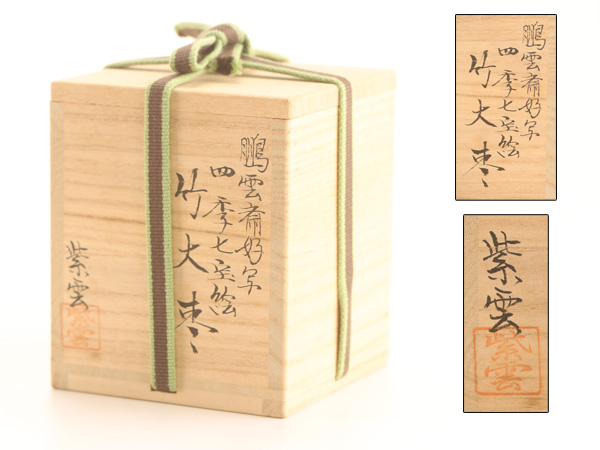 鵬雲斎好写
四季七宝絵
竹大棗
紫雲
紫雲
鵬雲斎好写
四季七宝絵
竹大棗
紫雲
紫雲